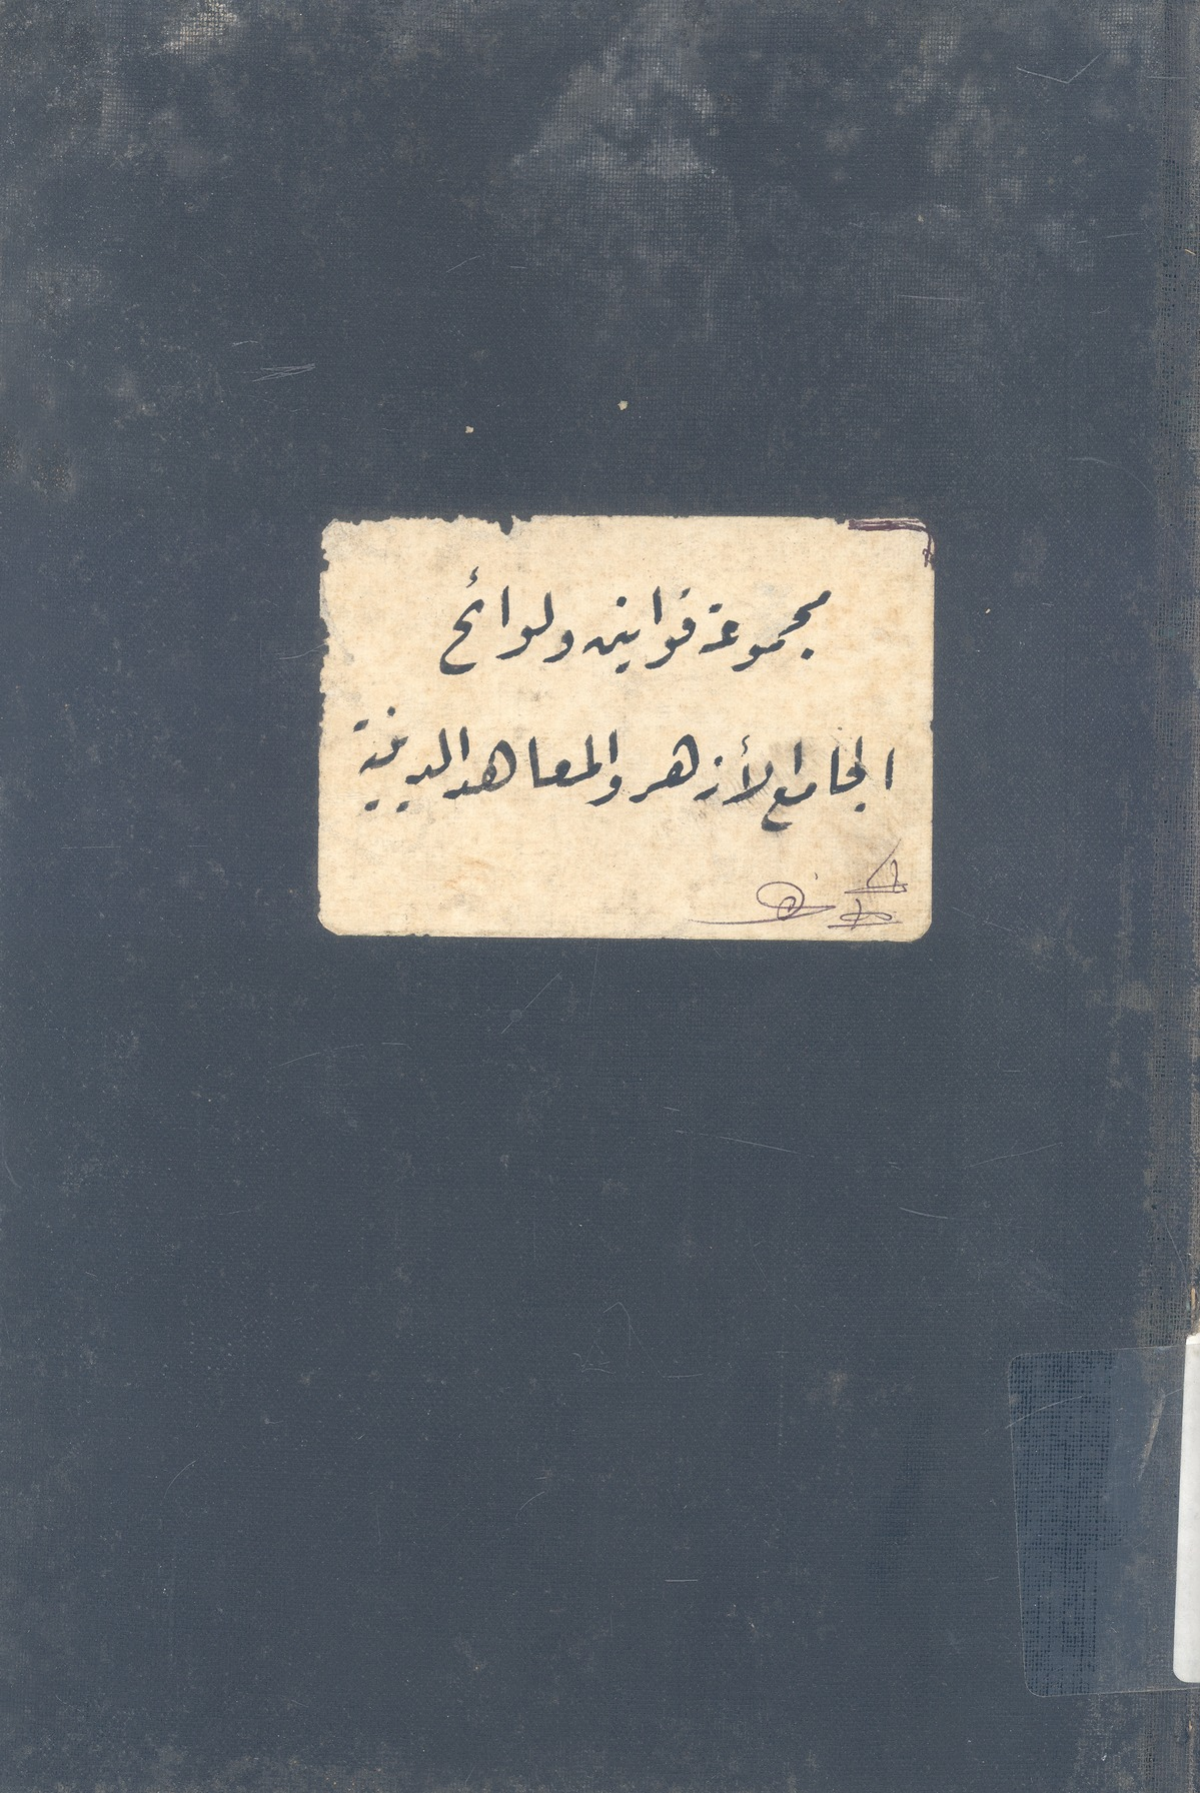 مجموعة قوانين ولوائح
الجامع الأزهر والمعاهد الدينية